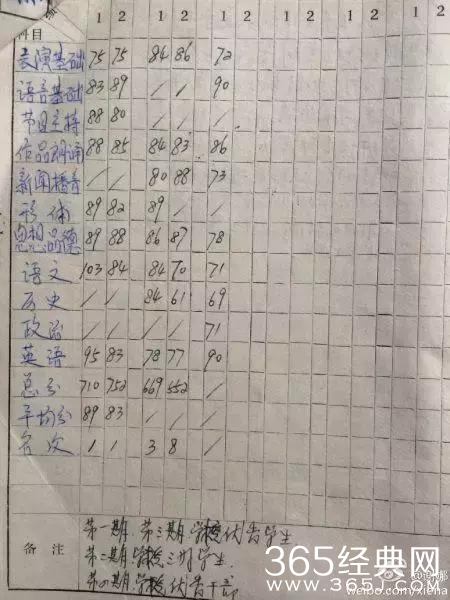 科目 1 2 1 2 1 2 1 2 1 2 1 2
表演基础 75 75 84 86 72
语言基础 83 89 / / 90
节目主持 88 80
作品朗诵 88 85 84 83 86
新闻播音 / / 80 88 73
形体 89 82 89 / /
思想品德 89 88 86 87 78
语文 103 84 84 70 71
历史 / / 84 61 69
政治 / / / / 71
英语 95 83 78 77 90
总分 710 752 669 552 /
平均分 89 83 / / /
名次 1 1 3 8 /
备注
第一期.第三期.学校优秀学生
第二期学校三好学生.
第四期.学校优秀干部
365经典网
www.365jz.com
weibo.com/xiena